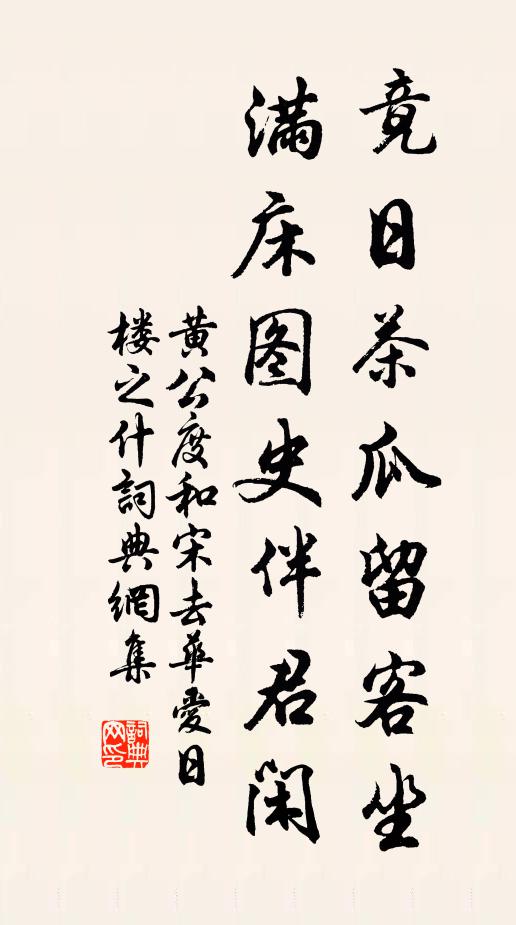 竟日茶瓜留客坐
满床图史伴君闲
黄公度和宋去华爱日
楼之什詞典網集
詞典网印